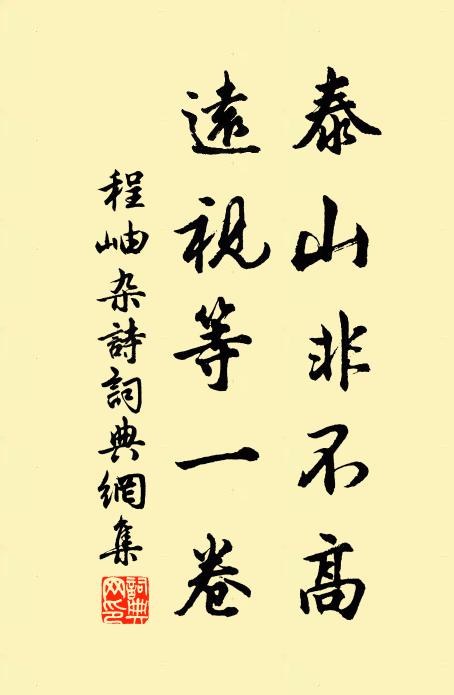 泰山非不高
遠視等一卷
程岫杂詩詞典網集
詞典
网印